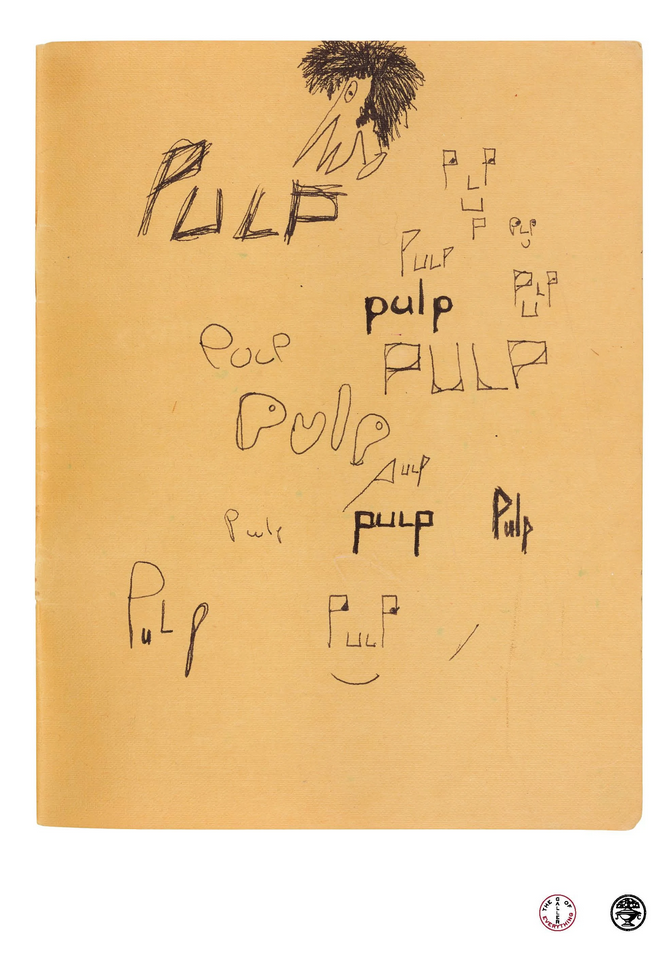 PULP
P P
L
U
P
PULP
PULP
PLP
U
pulp
PULP
PULP
Pulp
PULP
Pulp
pulp
Pulp
PuLp
PULP
THE GALLERY OF EVERYTHING